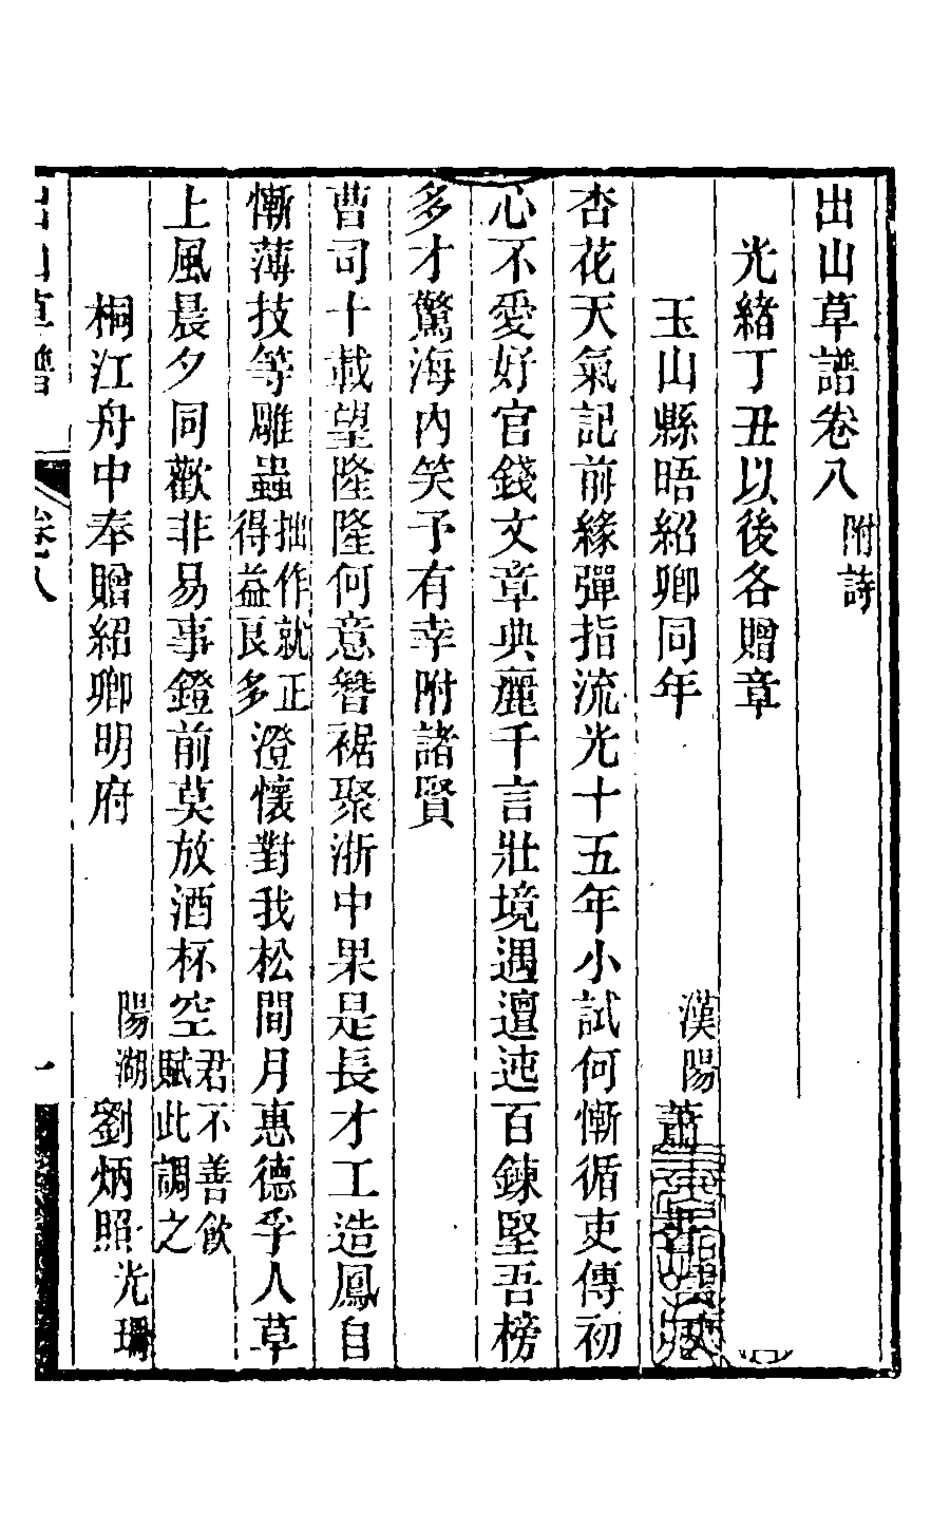 出山草譜卷八 附詩
光緒丁丑以後各贈章
玉山縣晤紹卿同年 漢陽 蕭
杏花天氣記前緣彈指流光十五年小試何慚循吏傳初
心不愛好官錢文章典麗千言壯境遇邅迍百鍊堅吾榜
多才驚海內笑予有幸附諸賢
曹司十載望隆隆何意簪裾聚浙中果是長才工造鳳自
慚薄技等雕蟲 拙作就正得益良多 澄懷對我松間月惠德孚人草
上風晨夕同歡非易事鐙前莫放酒杯空 君不善飲賦此調之
桐江舟中奉贈紹卿明府 陽湖 劉炳照 光珊
出山草譜 卷八 一